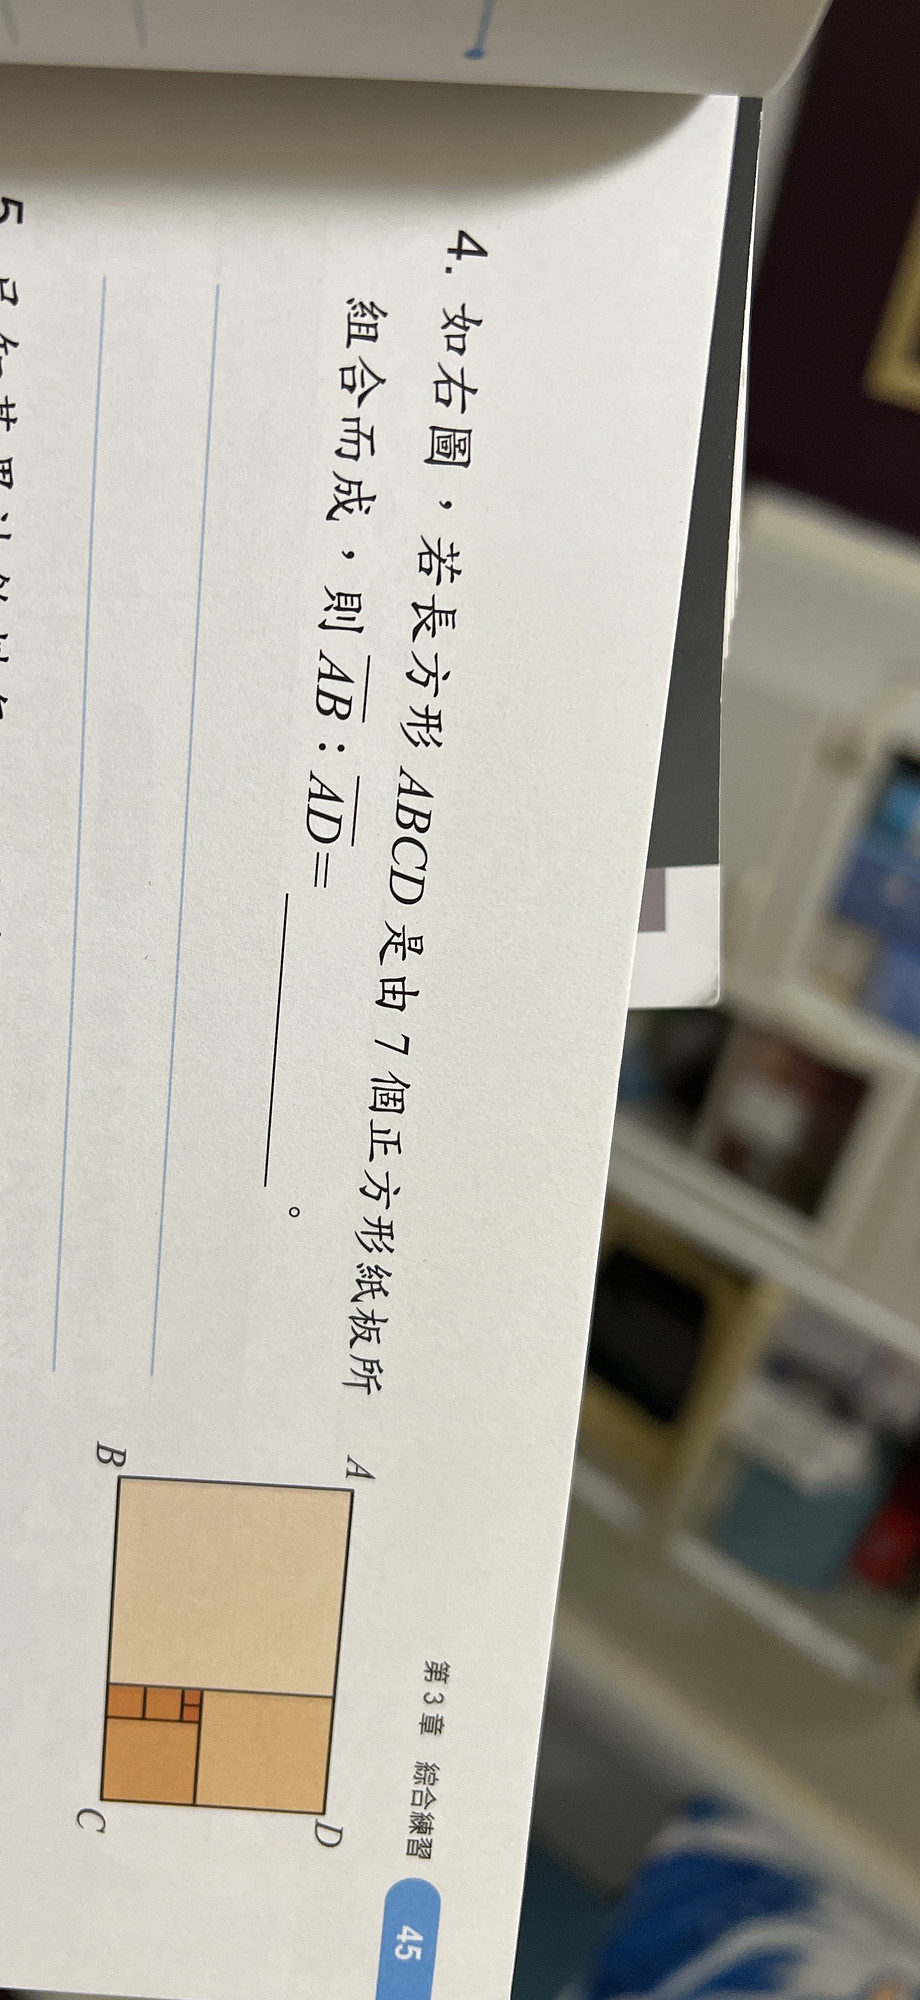 4. 如右圖，若長方形 ABCD 是由 7 個正方形紙板所
組合而成，則 AB：AD=________。
A
D
B
C
5
第 3 章 綜合練習
45